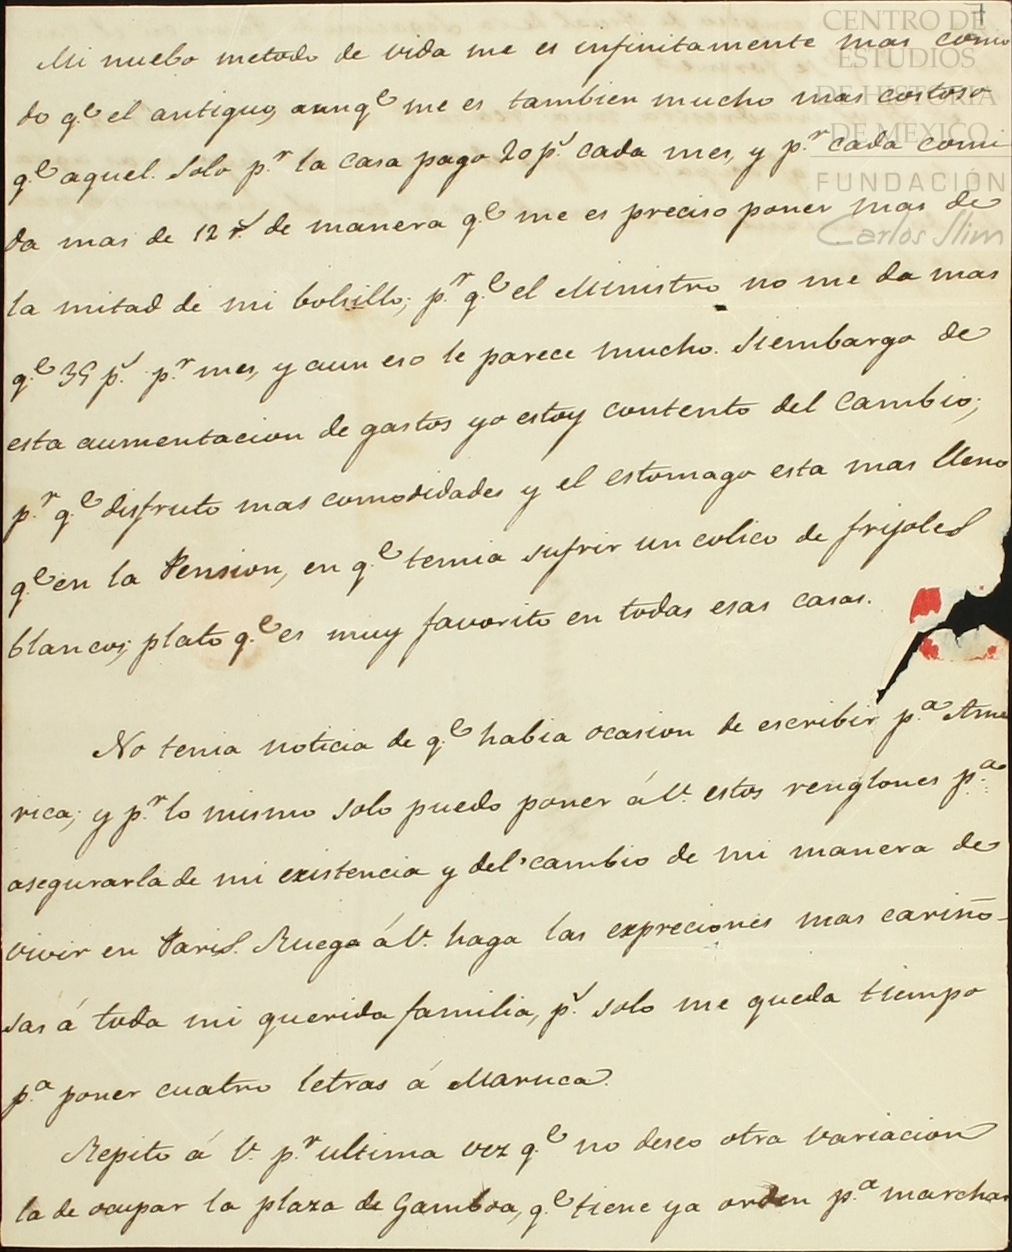 7
CENTRO DE
ESTUDIOS
DE HISTORIA
DE MEXICO
FUNDACIÓN
Carlos Slim
Mi nuebo metodo de vida me es infinitamente mas como
do q.e el antiguo, aunq.e me es tambien mucho mas costoso
q.e aquel. Solo p.r la casa pago 20 p.s cada mes, y p.r cada comi
da mas de 12 r.s de manera q.e me es preciso poner mas de
la mitad de mi bolsillo; p.r q.e el Ministro no me da mas
q.e 35 p.s p.r mes, y aun eso le parece mucho. Siembargo de
esta aumentacion de gastos yo estoy contento del cambio;
p.r q.e disfruto mas comodidades y el estomago esta mas lleno
q.e en la Pension, en q.e temia sufrir un colico de frijoles
blancos; plato q.e es muy favorito en todas esas casas.
No tenia noticia de q.e habia ocasion de escribir p.a Ame
rica; y p.r lo mismo solo puedo poner á V. estos renglones p.a
asegurarla de mi existencia y del cambio de mi manera de
vivir en Paris. Ruego á V. haga las expreciones mas cariño-
sas á toda mi querida familia, p.s solo me queda tiempo
p.a poner cuatro letras á Maruca.
Repito á V. p.r ultima vez q.e no deseo otra variacion
la de ocupar la plaza de Gamboa, q.e tiene ya orden p.a marchar